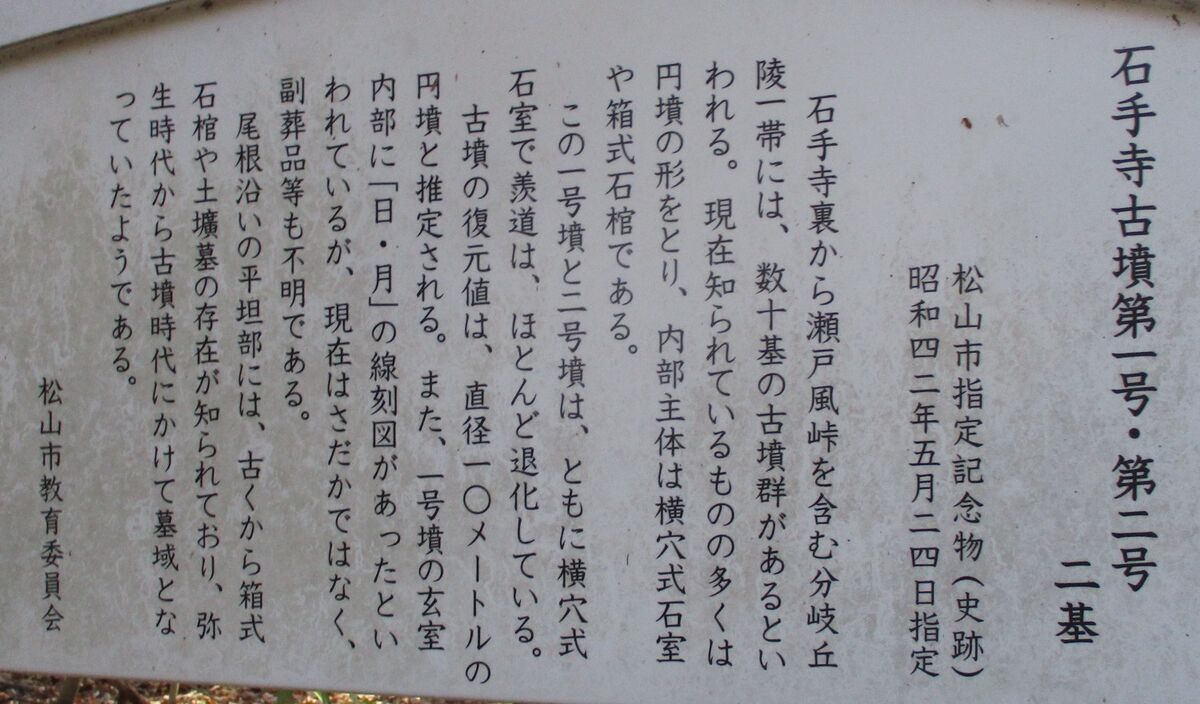 石手寺古墳第一号・第二号
二基
松山市指定記念物(史跡)
昭和四二年五月二四日指定
石手寺裏から瀬戸風峠を含む分岐丘
陵一帯には、数十基の古墳群があるとい
われる。現在知られているものの多くは
円墳の形をとり、内部主体は横穴式石室
や箱式石棺である。
この一号墳と二号墳は、ともに横穴式
石室で羨道は、ほとんど退化している。
古墳の復元値は、直径一〇メートルの
円墳と推定される。また、一号墳の玄室
内部に「日・月」の線刻図があったとい
われているが、現在はさだかではなく、
副葬品等も不明である。
尾根沿いの平坦部には、古くから箱式
石棺や土壙墓の存在が知られており、弥
生時代から古墳時代にかけて墓域とな
っていたようである。
松山市教育委員会